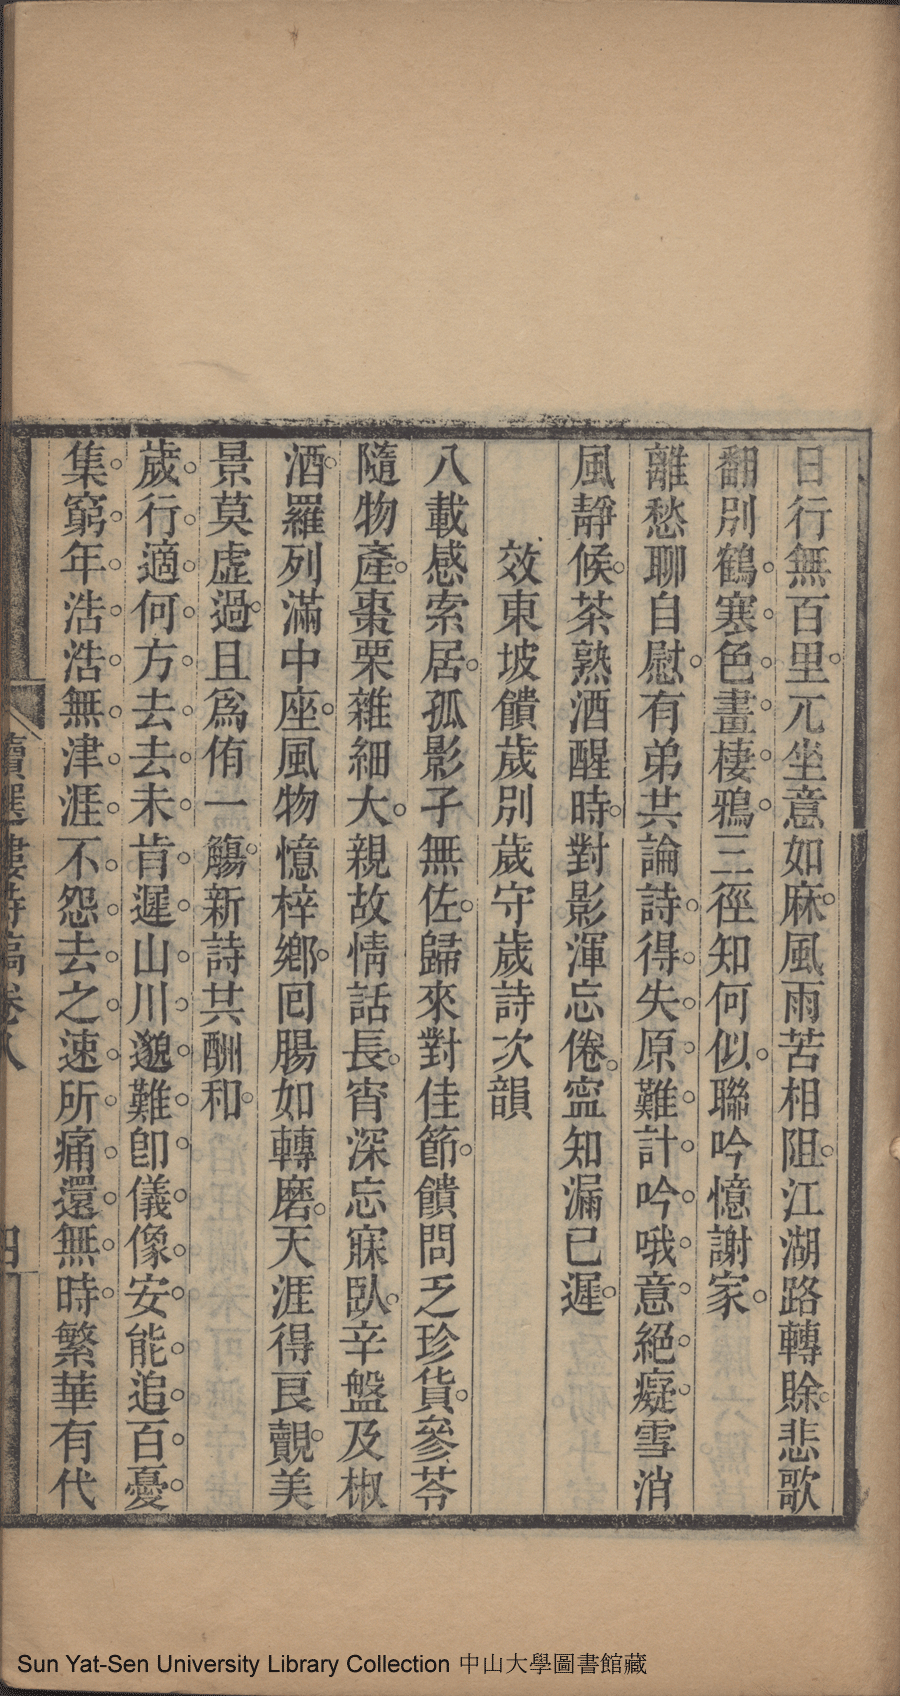 日行無百里元坐意如麻風雨苦相阻江湖路轉賖悲歌
翻別鶴寒色畫棲鴉三徑知何似聯吟憶謝家
離愁聊自慰有弟共論詩得失原難計吟哦意絕癡雪消
風靜候茶熟酒醒時對影渾忘倦寍知漏已遲
效東坡饋歲別歲守歲詩次韻
八載感索居孤影子無佐歸來對佳節饋問乏珍貨參苓
隨物產棗栗雜細大親故情話長宵深忘寐臥辛盤及椒
酒羅列滿中座風物憶梓鄉囘腸如轉磨天涯得良覿美
景莫虛過且爲侑一觴新詩共酬和
歲行適何方去去未肯遲山川邈難卽儀像安能追百憂
集窮年浩浩無津涯不怨去之速所痛還無時繁華有代
讀選樓詩稿卷八
四
Sun Yat-Sen University Library Collection 中山大學圖書館藏